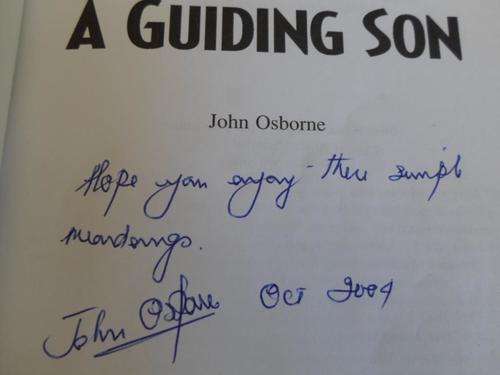 A GUIDING SON
John Osborne
Hope you enjoy these simple
meanderings.
John Osborne Oct 2004